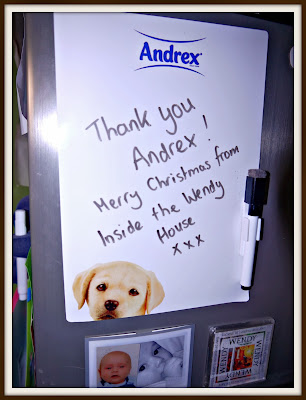 Andrex
Thank you
Andrex!
Merry Christmas from
Inside the Wendy
House
xxx
WENDY